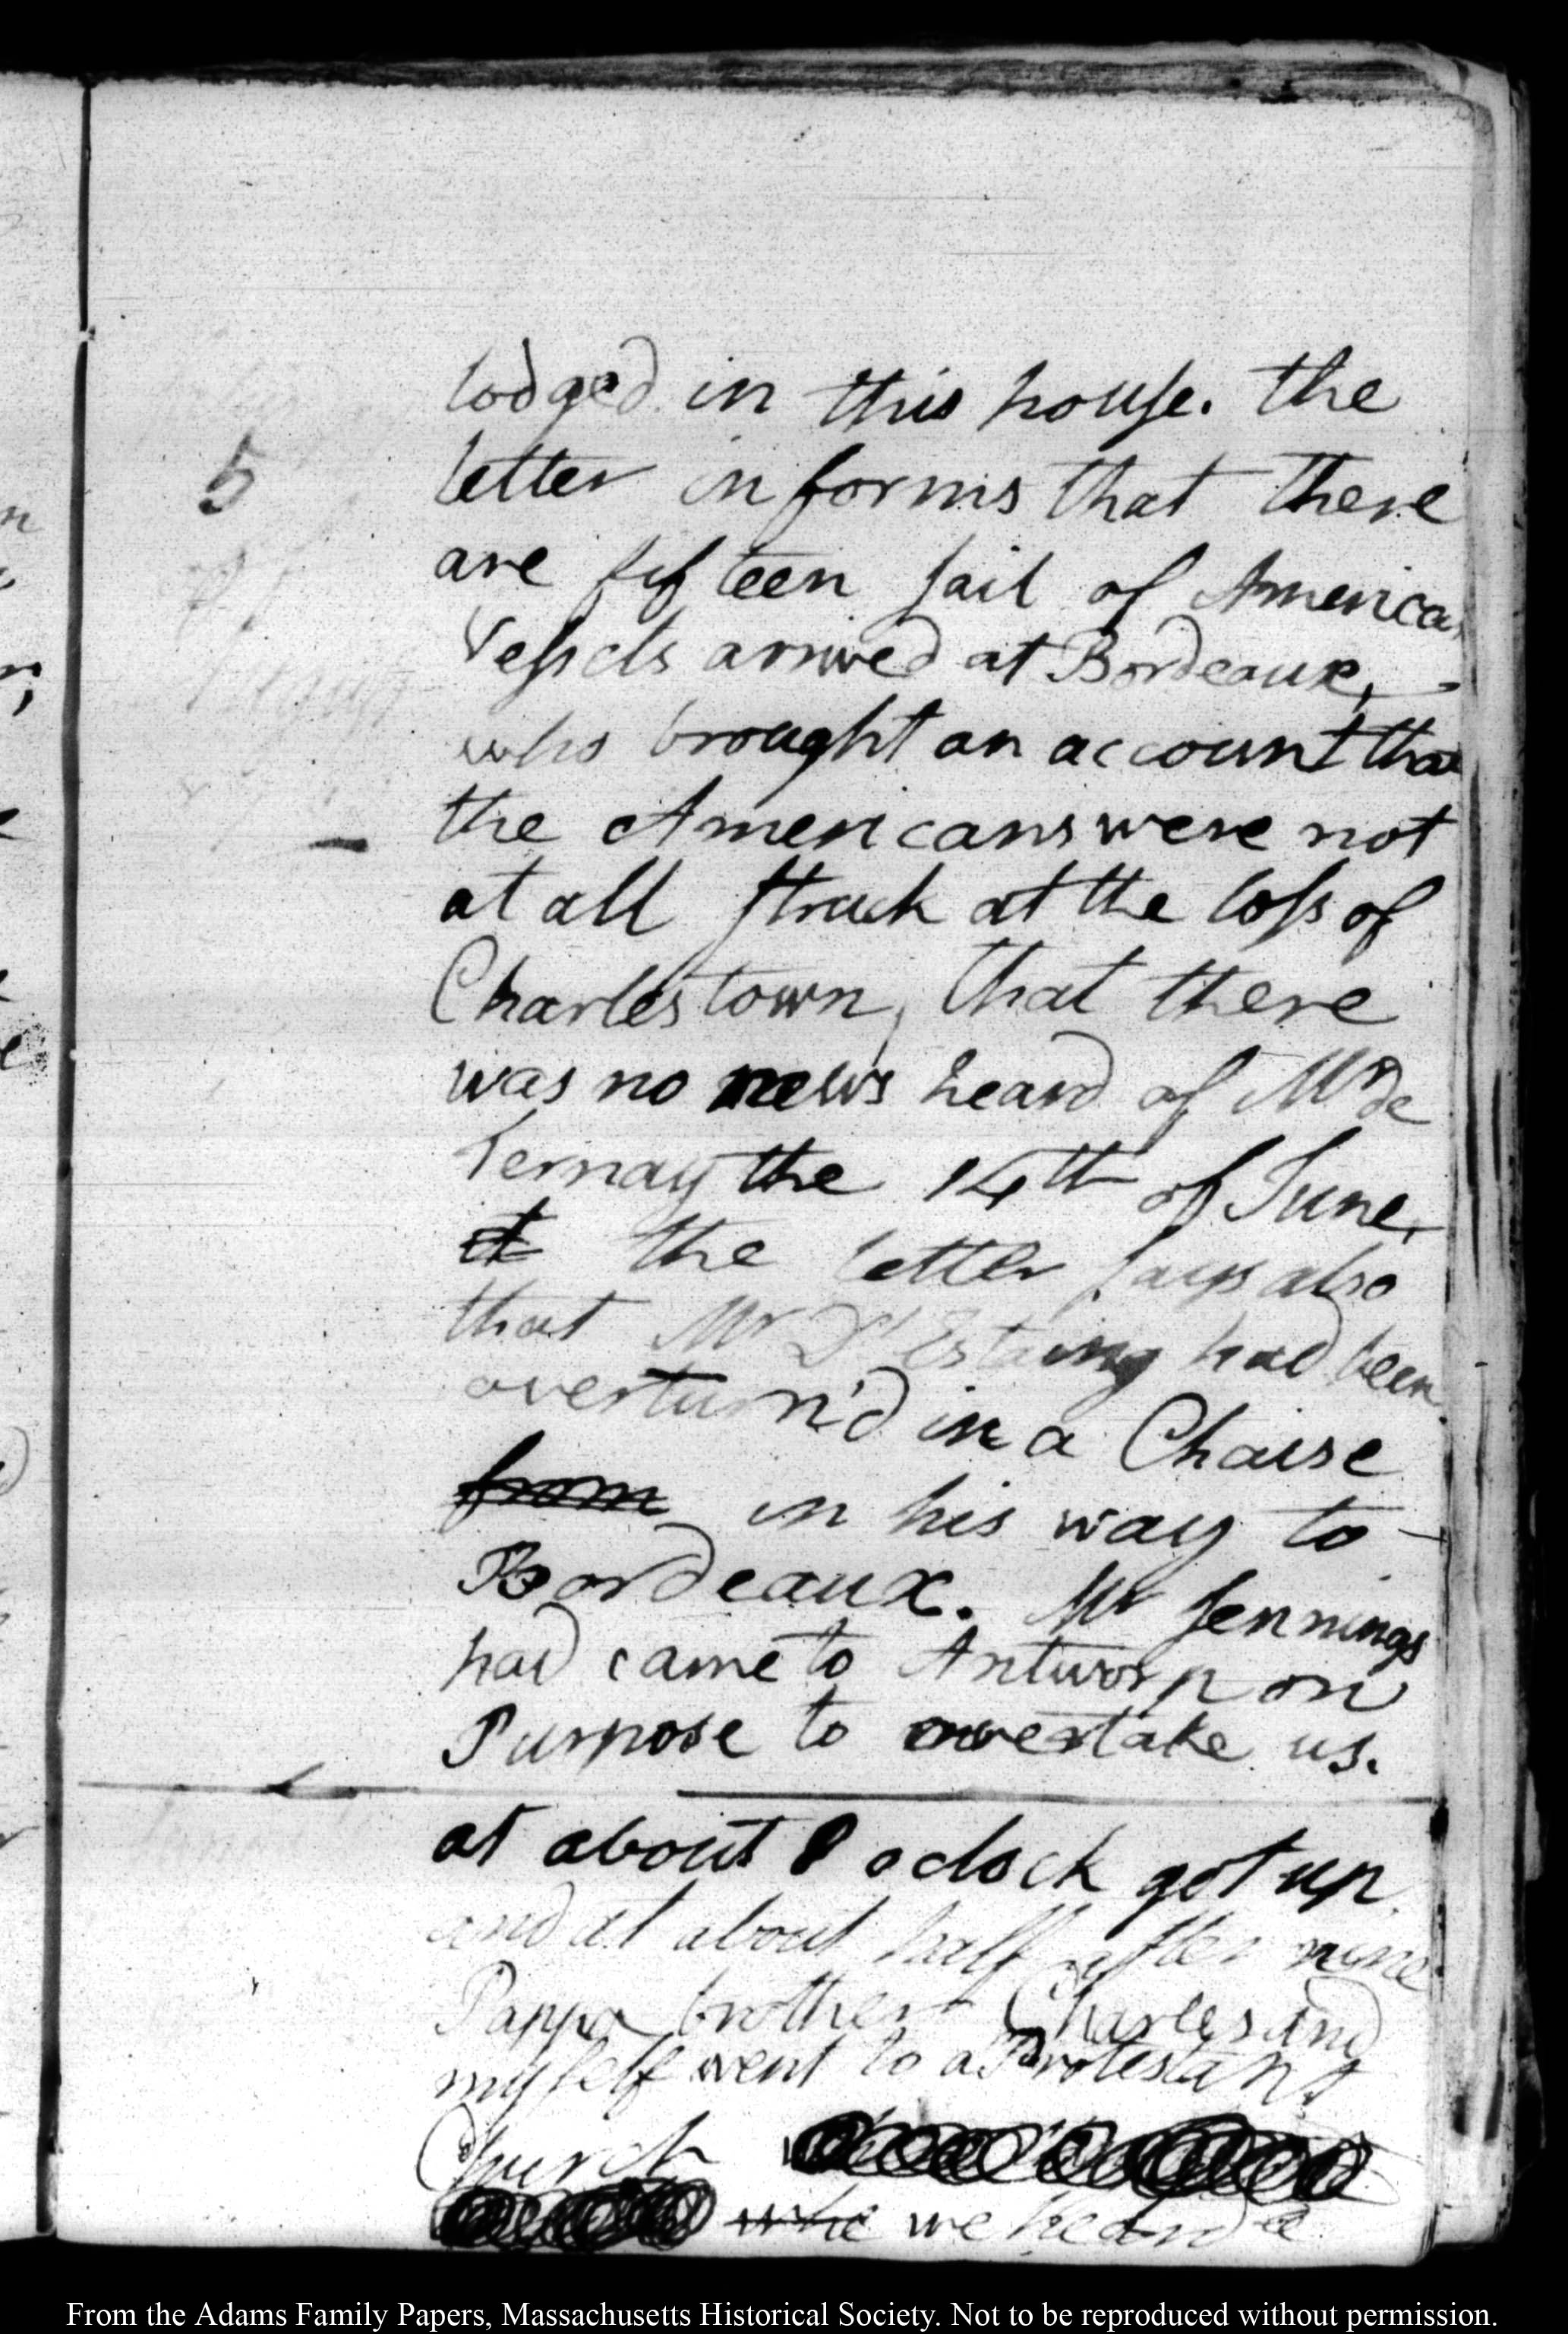 lodged in this house. the
5
letter informs that there
are fifteen sail of America
Vessels arrived at Bordeaux,
who brought an account that
the Americans were not
at all struck at the loss of
Charlestown, that there
was no news heard of Mr de
Ternay the 14th of June,
it the letter says also
that Mr D'Estaing had been
overturn'd in a Chaise
from in his way to
Bordeaux. Mr Jennings
had came to Antworp on
Purpose to overtake us.
at about 8 oclock got up
and at about half after nine
Pappa brother Charles and
myself went to a Protestant
Church
who we heard a
From the Adams Family Papers, Massachusetts Historical Society. Not to be reproduced without permission.